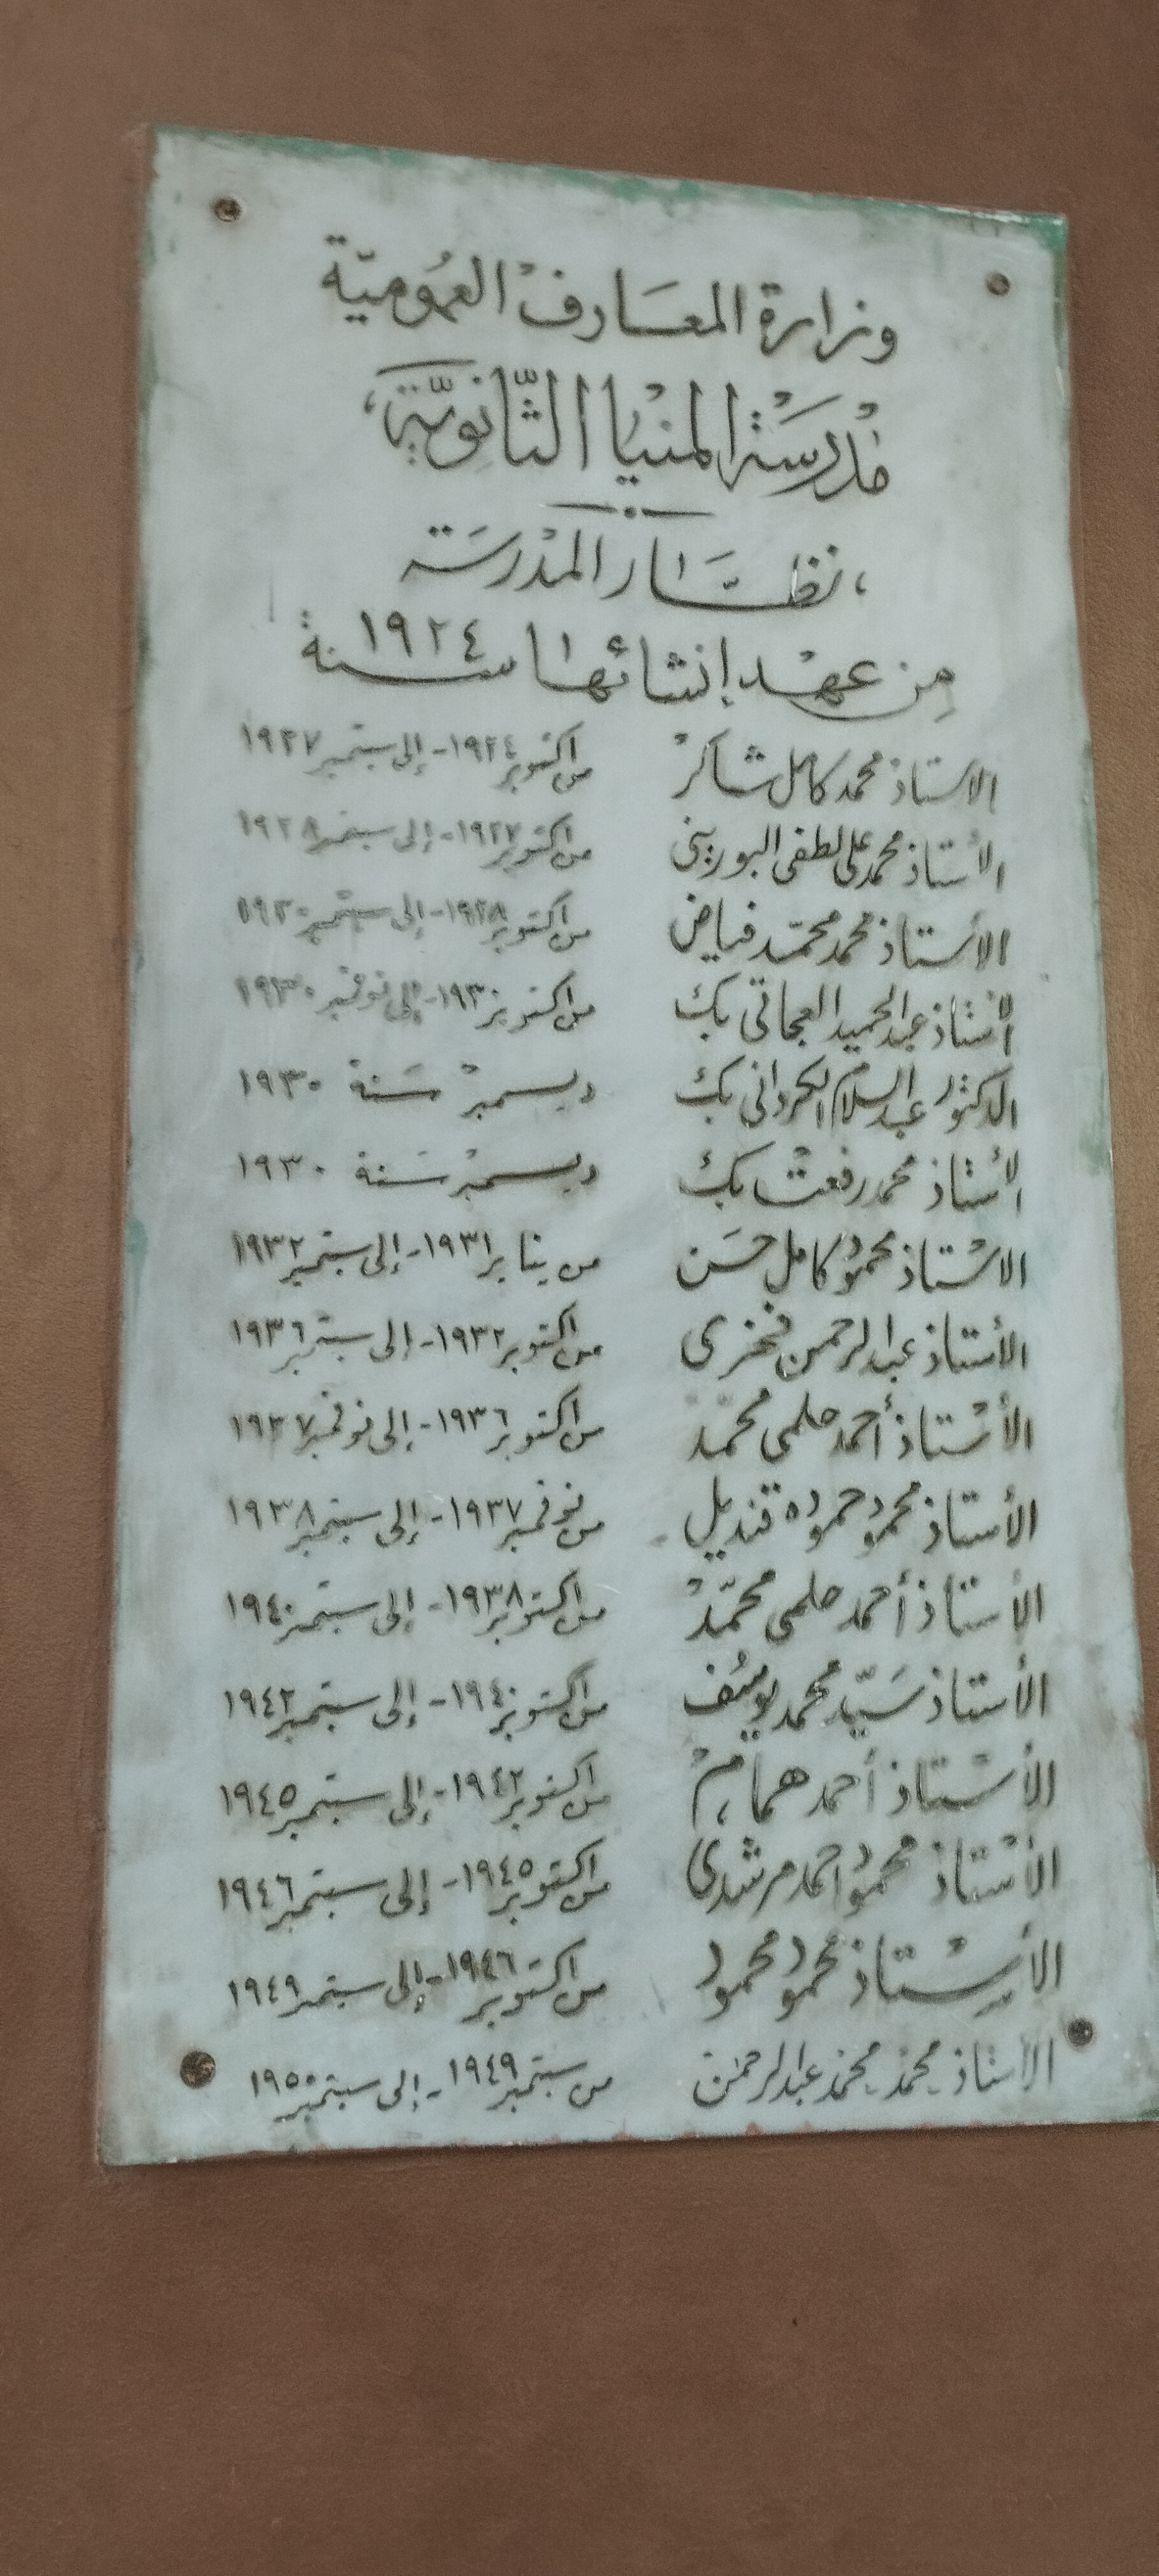 وزارة المعارف العمومية
مدرسة المنيا الثانوية
نظار المدرسة
من عهد إنشائها سنة ١٩٢٤
الاستاذ محمد كامل شاكر من اكتوبر ١٩٢٤ - إلى سبتمبر ١٩٢٧
الأستاذ محمد على لطفى البورينى من اكتوبر ١٩٢٧ - إلى سبتمبر ١٩٢٨
الأستاذ محمد محمد فياض من اكتوبر ١٩٢٨ - إلى سبتمبر ١٩٣٠
الأستاذ عبد الحميد العجاتى بك من اكتوبر ١٩٣٠ - إلى نوفمبر ١٩٣٠
الدكتور عبد السلام الكردانى بك ديسمبر سنة ١٩٣٠
الأستاذ محمد رفعت بك ديسمبر سنة ١٩٣٠
الاستاذ محمود كامل حسن من يناير ١٩٣١ - إلى سبتمبر ١٩٣٢
الأستاذ عبد الرحمن فخرى من اكتوبر ١٩٣٢ - إلى سبتمبر ١٩٣٦
الأستاذ أحمد حلمى محمد من اكتوبر ١٩٣٦ - إلى نوفمبر ١٩٣٧
الأستاذ محمود حموده قنديل من نوفمبر ١٩٣٧ - إلى سبتمبر ١٩٣٨
الأستاذ أحمد حلمى محمد من اكتوبر ١٩٣٨ - إلى سبتمبر ١٩٤٠
الأستاذ سيد محمد يوسف من اكتوبر ١٩٤٠ - إلى سبتمبر ١٩٤٢
الأستاذ أحمد همام من اكتوبر ١٩٤٢ - إلى سبتمبر ١٩٤٥
الأستاذ محمود احمد مرشدى من اكتوبر ١٩٤٥ - إلى سبتمبر ١٩٤٦
الأستاذ محمود محمود من اكتوبر ١٩٤٦ - إلى سبتمبر ١٩٤٩
الأستاذ محمد محمد عبد الرحمن من سبتمبر ١٩٤٩ - إلى سبتمبر ١٩٥٠